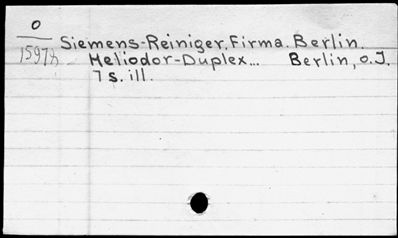 O
15978
Siemens-Reiniger, Firma. Berlin.
Heliodor-Duplex... Berlin, o.J.
7 s. ill.